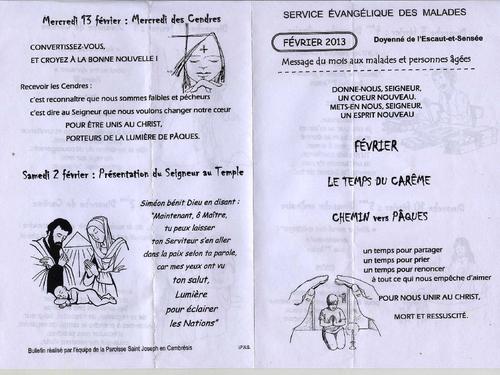 Mercredi 13 février : Mercredi des Cendres
CONVERTISSEZ-VOUS,
ET CROYEZ À LA BONNE NOUVELLE !
Recevoir les Cendres :
c'est reconnaître que nous sommes faibles et pécheurs
c'est dire au Seigneur que nous voulons changer notre cœur
POUR ÊTRE UNIS AU CHRIST,
PORTEURS DE LA LUMIÈRE DE PÂQUES.
Samedi 2 février : Présentation du Seigneur au Temple
Siméon bénit Dieu en disant :
"Maintenant, ô Maître,
tu peux laisser
ton Serviteur s'en aller
dans la paix selon ta parole,
car mes yeux ont vu
ton salut,
Lumière
pour éclairer
les Nations"
Bulletin réalisé par l'équipe de la Paroisse Saint Joseph en Cambrésis
SERVICE ÉVANGÉLIQUE DES MALADES
FÉVRIER 2013
Doyenné de l'Escaut-et-Sensée
Message du mois aux malades et personnes âgées
DONNE-NOUS, SEIGNEUR,
UN CŒUR NOUVEAU.
METS-EN NOUS, SEIGNEUR,
UN ESPRIT NOUVEAU
FÉVRIER
LE TEMPS DU CARÊME
CHEMIN vers PÂQUES
un temps pour partager
un temps pour prier
un temps pour renoncer
à tout ce qui nous empêche d'aimer
POUR NOUS UNIR AU CHRIST,
MORT ET RESSUSCITÉ.